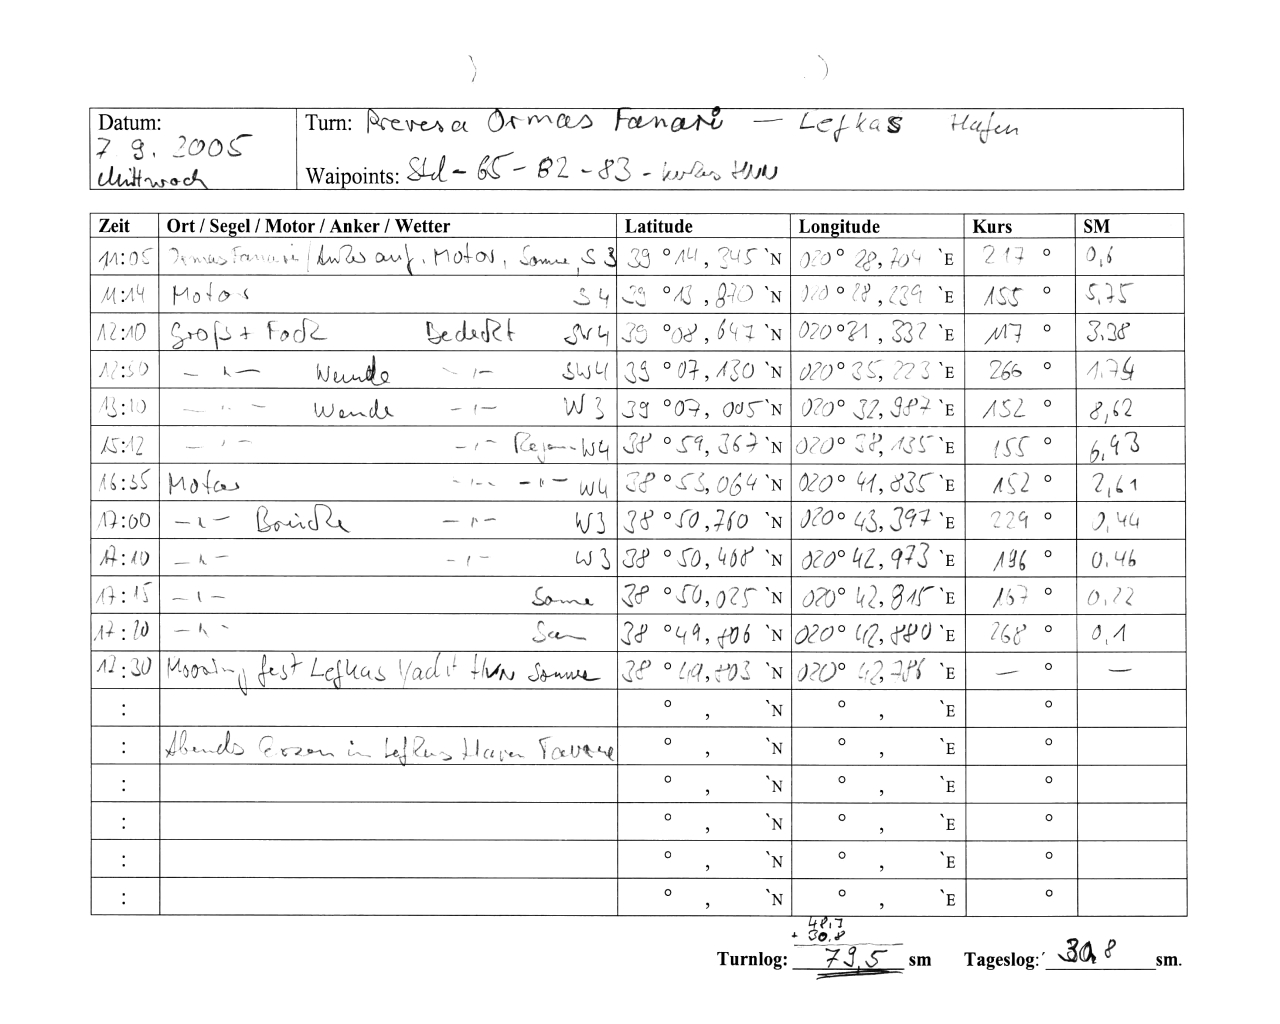 Datum: Turn: Prevesa Ormas Fanari — Lefkas Hafen
7 9. 2005
Mittwoch Waipoints: Std - 65 - 82 - 83 -
Zeit Ort / Segel / Motor / Anker / Wetter Latitude Longitude Kurs SM
11:05 Ormas Fanari / Anker auf, Motor, Sonne, S 3 39 °14, 345 `N 020° 28, 704 `E 217 ° 0,6
11:14 Motor S 4 39 °13, 870 `N 020° 28, 239 `E 155 ° 5,75
12:10 Groß + Fock Bedeckt SW4 39 °08, 647 `N 020° 31, 332 `E 117 ° 3,38
12:50 — " — Wende - " - SW4 39 °07, 130 `N 020° 35, 223 `E 266 ° 1.74
13:10 — " — Wende - " - W 3 39 °07, 005 `N 020° 32, 987 `E 152 ° 8,62
15:12 — " — - " - Regen W4 38 °59, 367 `N 020° 38, 135 `E 155 ° 6,93
16:35 Motor - " - - " - W4 38 °53, 064 `N 020° 41, 835 `E 152 ° 2,61
17:00 - " - Brücke - " - W3 38 °50, 760 `N 020° 43, 397 `E 229 ° 0,44
17:10 - " - - " - W3 38 °50, 468 `N 020° 42, 973 `E 196 ° 0,46
17:15 - " - Sonne 38 °50, 025 `N 020° 42, 815 `E 167 ° 0,22
17:20 - " - 38 °49, 806 `N 020° 42, 880 `E 268 ° 0,1
17:30 Mooring fest Lefkas Yacht Sonne 38 °49, 803 `N 020° 42, 786 `E — ° —
: ° , `N ° , `E °
: Abends Essen in Lefkas Taverne ° , `N ° , `E °
: ° , `N ° , `E °
: ° , `N ° , `E °
: ° , `N ° , `E °
: ° , `N ° , `E °
48,7
+ 30,8
Turnlog: 79,5 sm Tageslog: 30,8 sm.